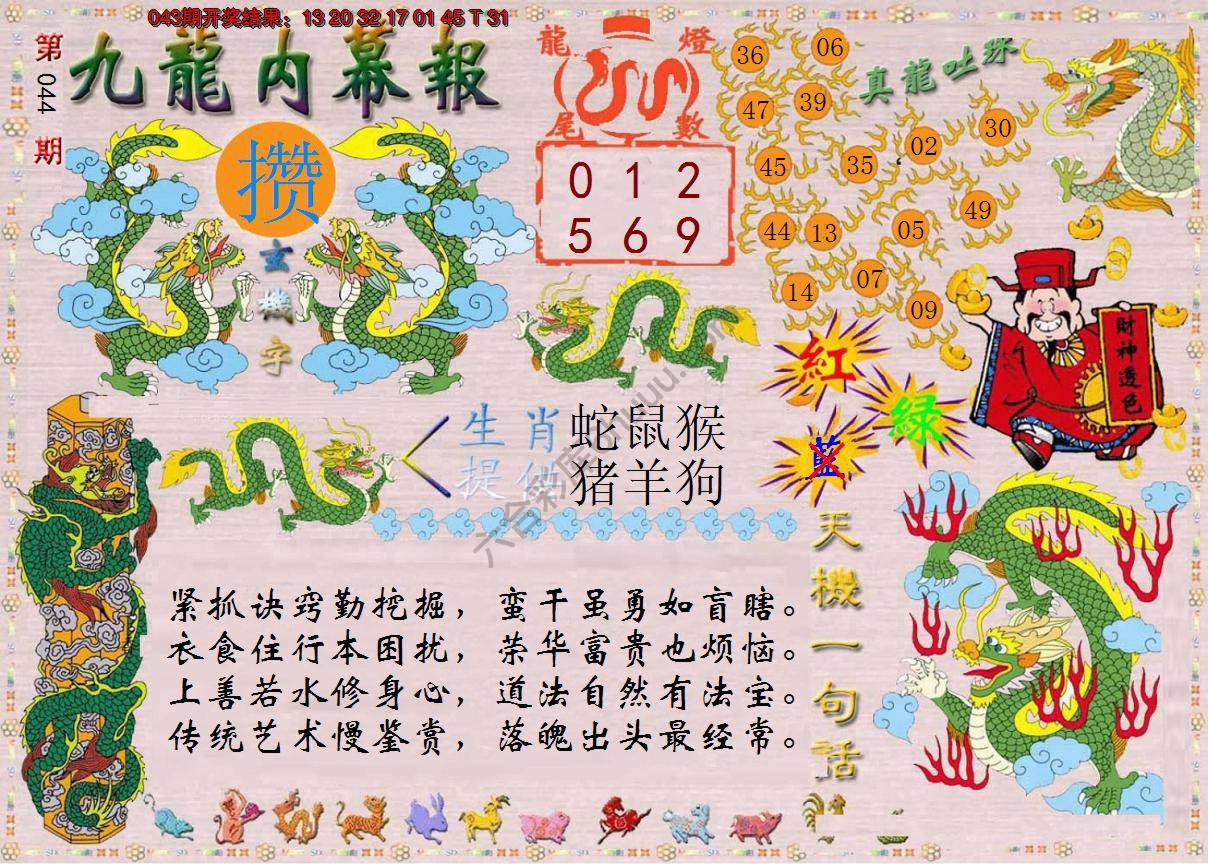 043期开奖结果：13 20 32 17 01 45 T 31
第
044
期
九龍内幕報
攒
玄
機
字
龍
燈
尾
數
0 1 2
5 6 9
真龍吐珠
36
06
47
39
45
35
02
30
44
13
05
49
14
07
09
紅
綠
藍
財神透色
生肖
提供
蛇鼠猴
猪羊狗
六合彩库
天機一句話
紧抓诀窍勤挖掘，蛮干虽勇如盲瞎。
衣食住行本困扰，荣华富贵也烦恼。
上善若水修身心，道法自然有法宝。
传统艺术慢鉴赏，落魄出头最经常。